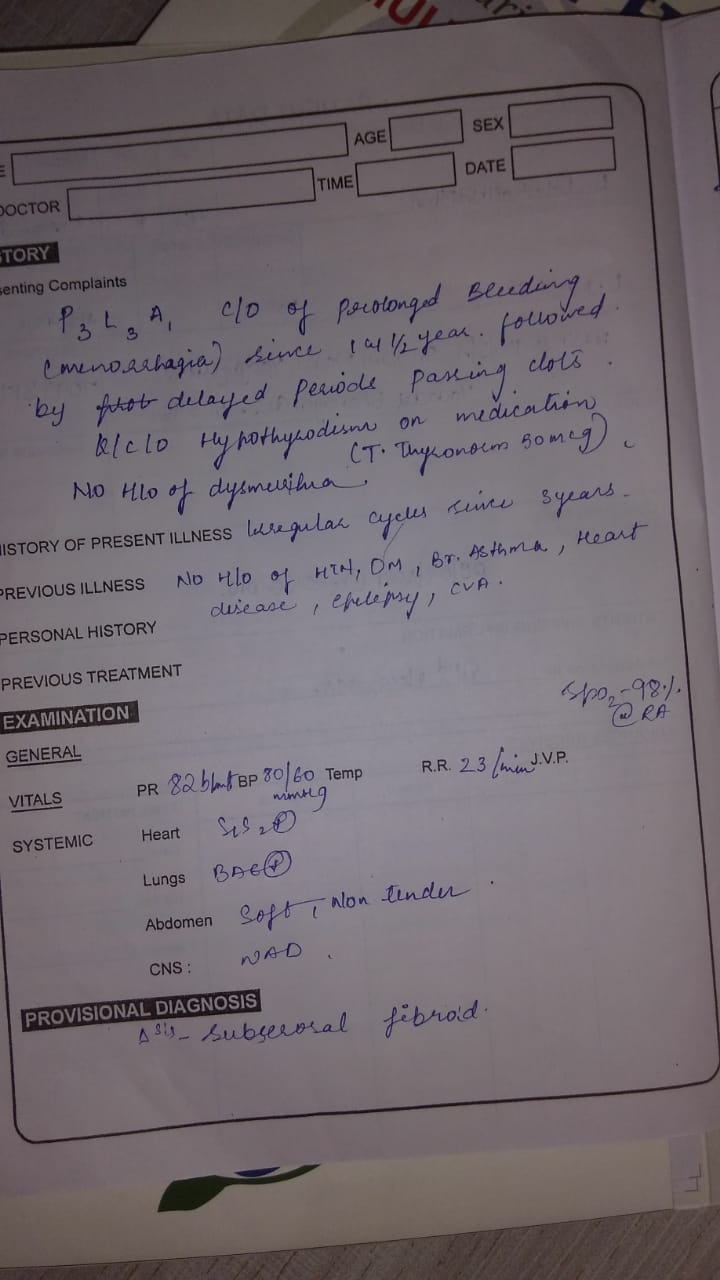 AGE
SEX
DOCTOR
TIME
DATE
TORY
senting Complaints
P3 L3 A1 C/O of prolonged Bleeding
(menorrhagia) since 1 1/2 year. followed
by delayed Periods passing clots.
K/C/O Hypothyrodism on medication
(T. Thyronorm 50mcg).
No H/o of
ISTORY OF PRESENT ILLNESS Irregular cycles since 3years.
PREVIOUS ILLNESS No H/o of HTN, DM, Br. Asthma, Heart
disease, epilepsy, CVA.
PERSONAL HISTORY
PREVIOUS TREATMENT
EXAMINATION
SpO2-98%.
@ RA
GENERAL
VITALS PR 82 b/mt BP 80/60 mmHg Temp R.R. 23/min J.V.P.
SYSTEMIC Heart S1S2 ⊕
Lungs BAE⊕
Abdomen Soft, Non tender.
CNS: NAD.
PROVISIONAL DIAGNOSIS
Δsis- Subserosal fibroid.